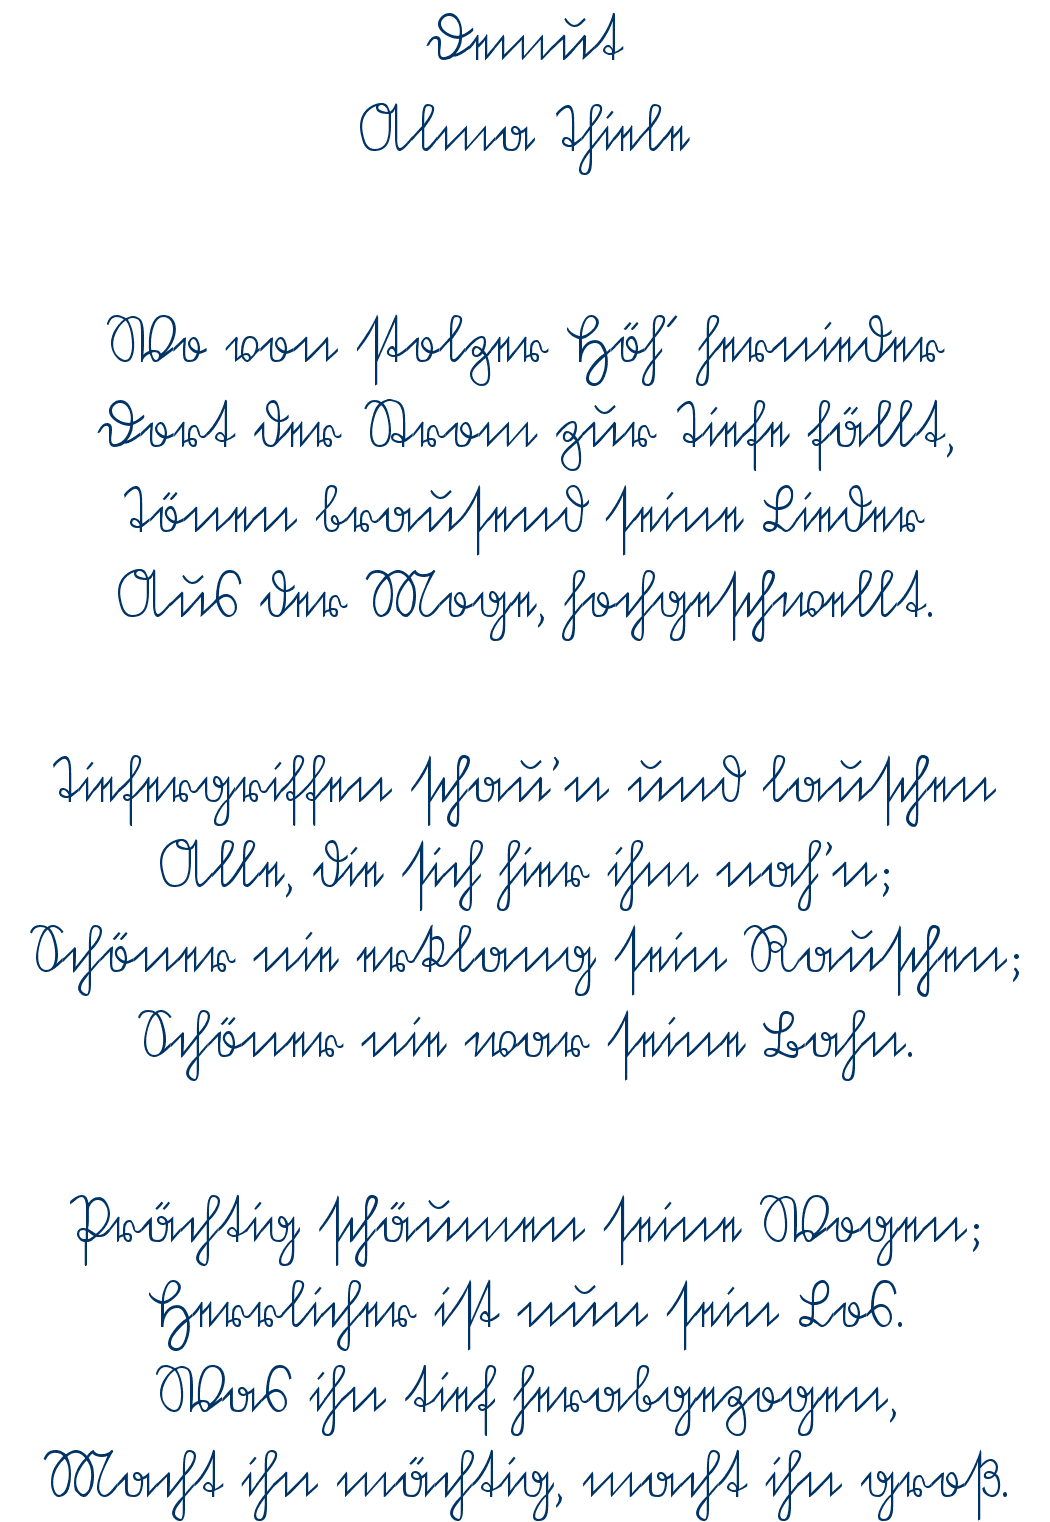 Demut
Alma Thiele
Wo von stolzer Höh´ hernieder
Dort der Strom zur Tiefe fällt,
Tönen brausend seine Lieder
Aus der Moge, hochgeschwellt.
Tiefergriffen schau’n und lauschen
Alle, die sich hier ihm nah’n;
Schöner nie erklang sein Rauschen;
Schöner nie war seine Bahn.
Prächtig schäumen seine Wogen;
Herrlicher ist nun sein Los.
Was ihn tief herabgezogen,
Macht ihn mächtig, macht ihn groß.